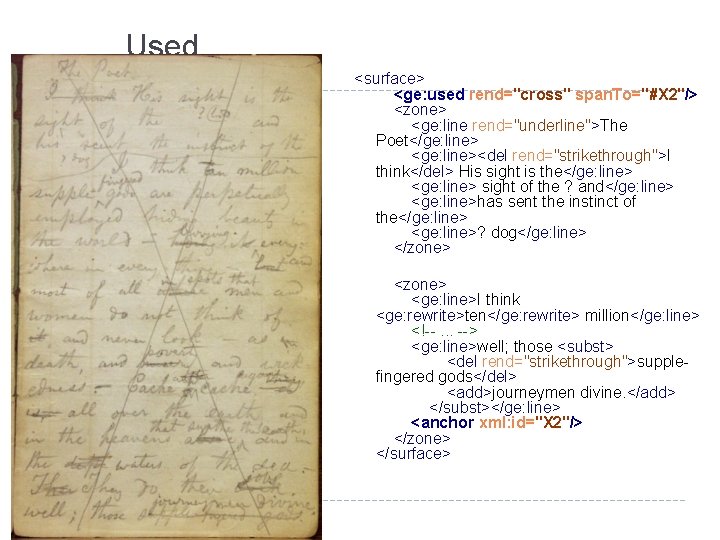 Used
The Poet.
I think His sight is the
sight of the ? (bo and
his scent the instinct of the
? dog I think ten million
fingered
supple gods are perpetually
employed hiding beauty in
the world — burying it every
where in every thing — and
in spots that
most of all men and
women do not think of
it, and never look — as
death, and poverty and wick
edness. — Cache after cache
is, all over the earth and
that swathe the earth,
in the heavens and in
the waters of the sea. —
They do their jobs
journeymen divine.
well; those supple fingered gods.
<surface>
<ge:used rend="cross" spanTo="#X2"/>
<zone>
<ge:line rend="underline">The
Poet</ge:line>
<ge:line><del rend="strikethrough">I
think</del> His sight is the</ge:line>
<ge:line> sight of the ? and</ge:line>
<ge:line>has sent the instinct of
the</ge:line>
<ge:line>? dog</ge:line>
</zone>
<zone>
<ge:line>I think
<ge:rewrite>ten</ge:rewrite> million</ge:line>
<!-- ... -->
<ge:line>well; those <subst>
<del rend="strikethrough">supple-
fingered gods</del>
<add>journeymen divine.</add>
</subst></ge:line>
<anchor xml:id="X2"/>
</zone>
</surface>